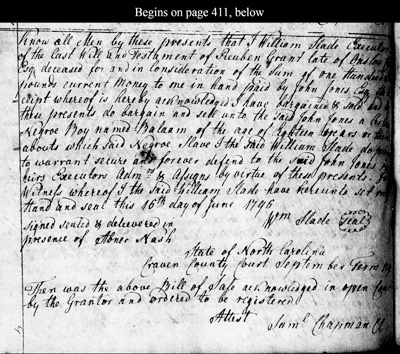 Begins on page 411, below
Know all Men by these presents that I William Slade Executor
of the Last Will and Testament of Reuben Grant late of Onslow
Esq. deceased for and in consideration of the Sum of one Hundred
pounds current Money to me in hand paid by John Jones Esq. the
ceipt whereof is hereby acknowledged I have bargained & sold and
these presents do bargain and sell unto the said John Jones a
Negroe Boy named Balaam of the age of Eighteen years or
abouts which said Negroe Slave I the said William Slade do
to warrant secure and forever defend to the said John Jones
eirs Executors Admrs & Assigns by virtue of these presents. In
Witness whereof I the said William Slade have hereunto set my
Hand and seal this 16th day of June 1796
Signed sealed & delivered in Wm Slade Seal
presence of Abner Nash
State of North Carolina
Craven County Court September Term
Then was the above Bill of Sale acknowledged in open Court
by the Grantor and ordered to be registered
Attest
Saml. Chapman Cl